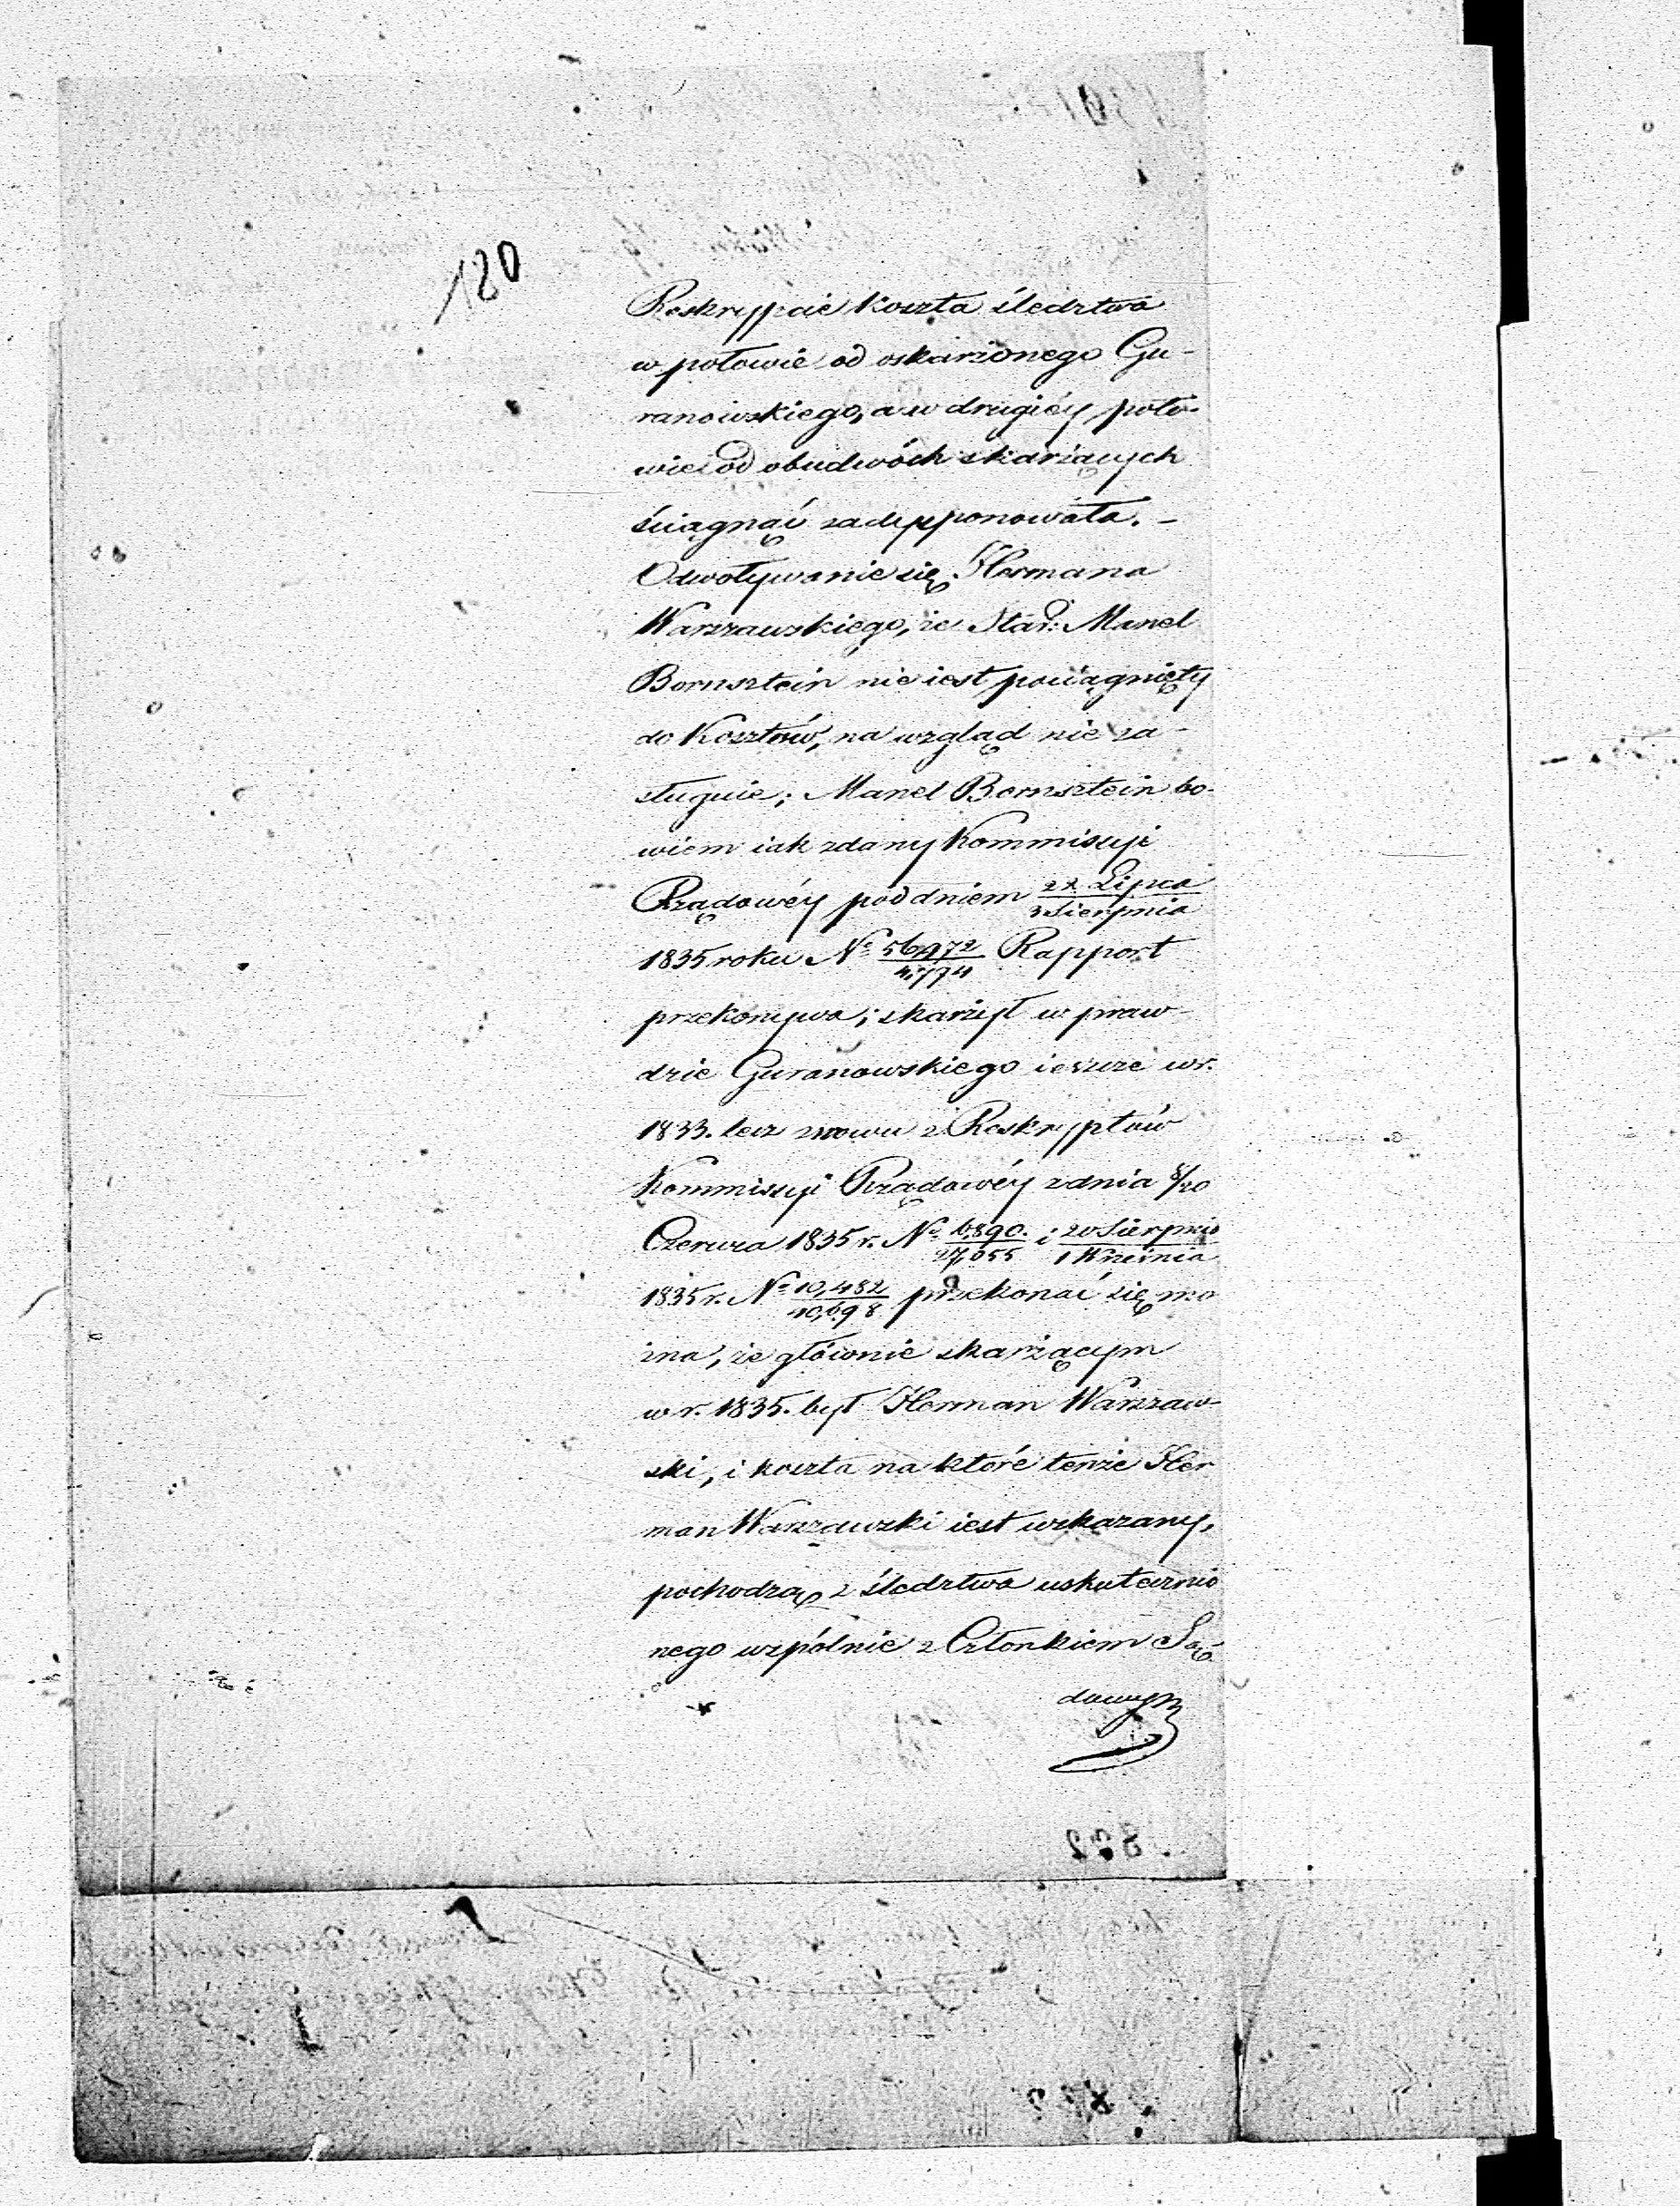 180
Reskrypcie koszta śledztwa
w połowie od oskarżonego Gu-
ranowskiego, a w drugiéy poło-
wie od obudwóch skarżących
ściągnąć zadepponowała. –
Odwoływanie się Hermana
Warszawskiego, że Star: Manel
Bornsztein nie iest pociągnięty
do Kosztów, na wzgląd nie za-
sługuie; Manel Bornsztein bo-
wiem iak zdany Kommissyi
Rządowéy pod dniem 22 Lipca / 3 Sierpnia
1835 roku No Rapport
przekonywa; skarżył w praw-
dzie Guranowskiego ieszcze w r.
1833. lecz znowu z Reskryptów
Kommissyi Rządowéy z dnia 8/20
Czerwca 1835 r. No 6,890. / 27,055 i 20 Sierpnia / 1 Września
1835 r. No 10,482 / 40,698 przekonać się mo
żna, że głównie skarżącym
w r. 1835. był Herman Warszaw-
ski, i koszta na któré tenże Her
man Warszawski iest wskazany,
pochodzą z śledztwa uskutecznio
nego wspólnie z Członkiem Są-
dowym